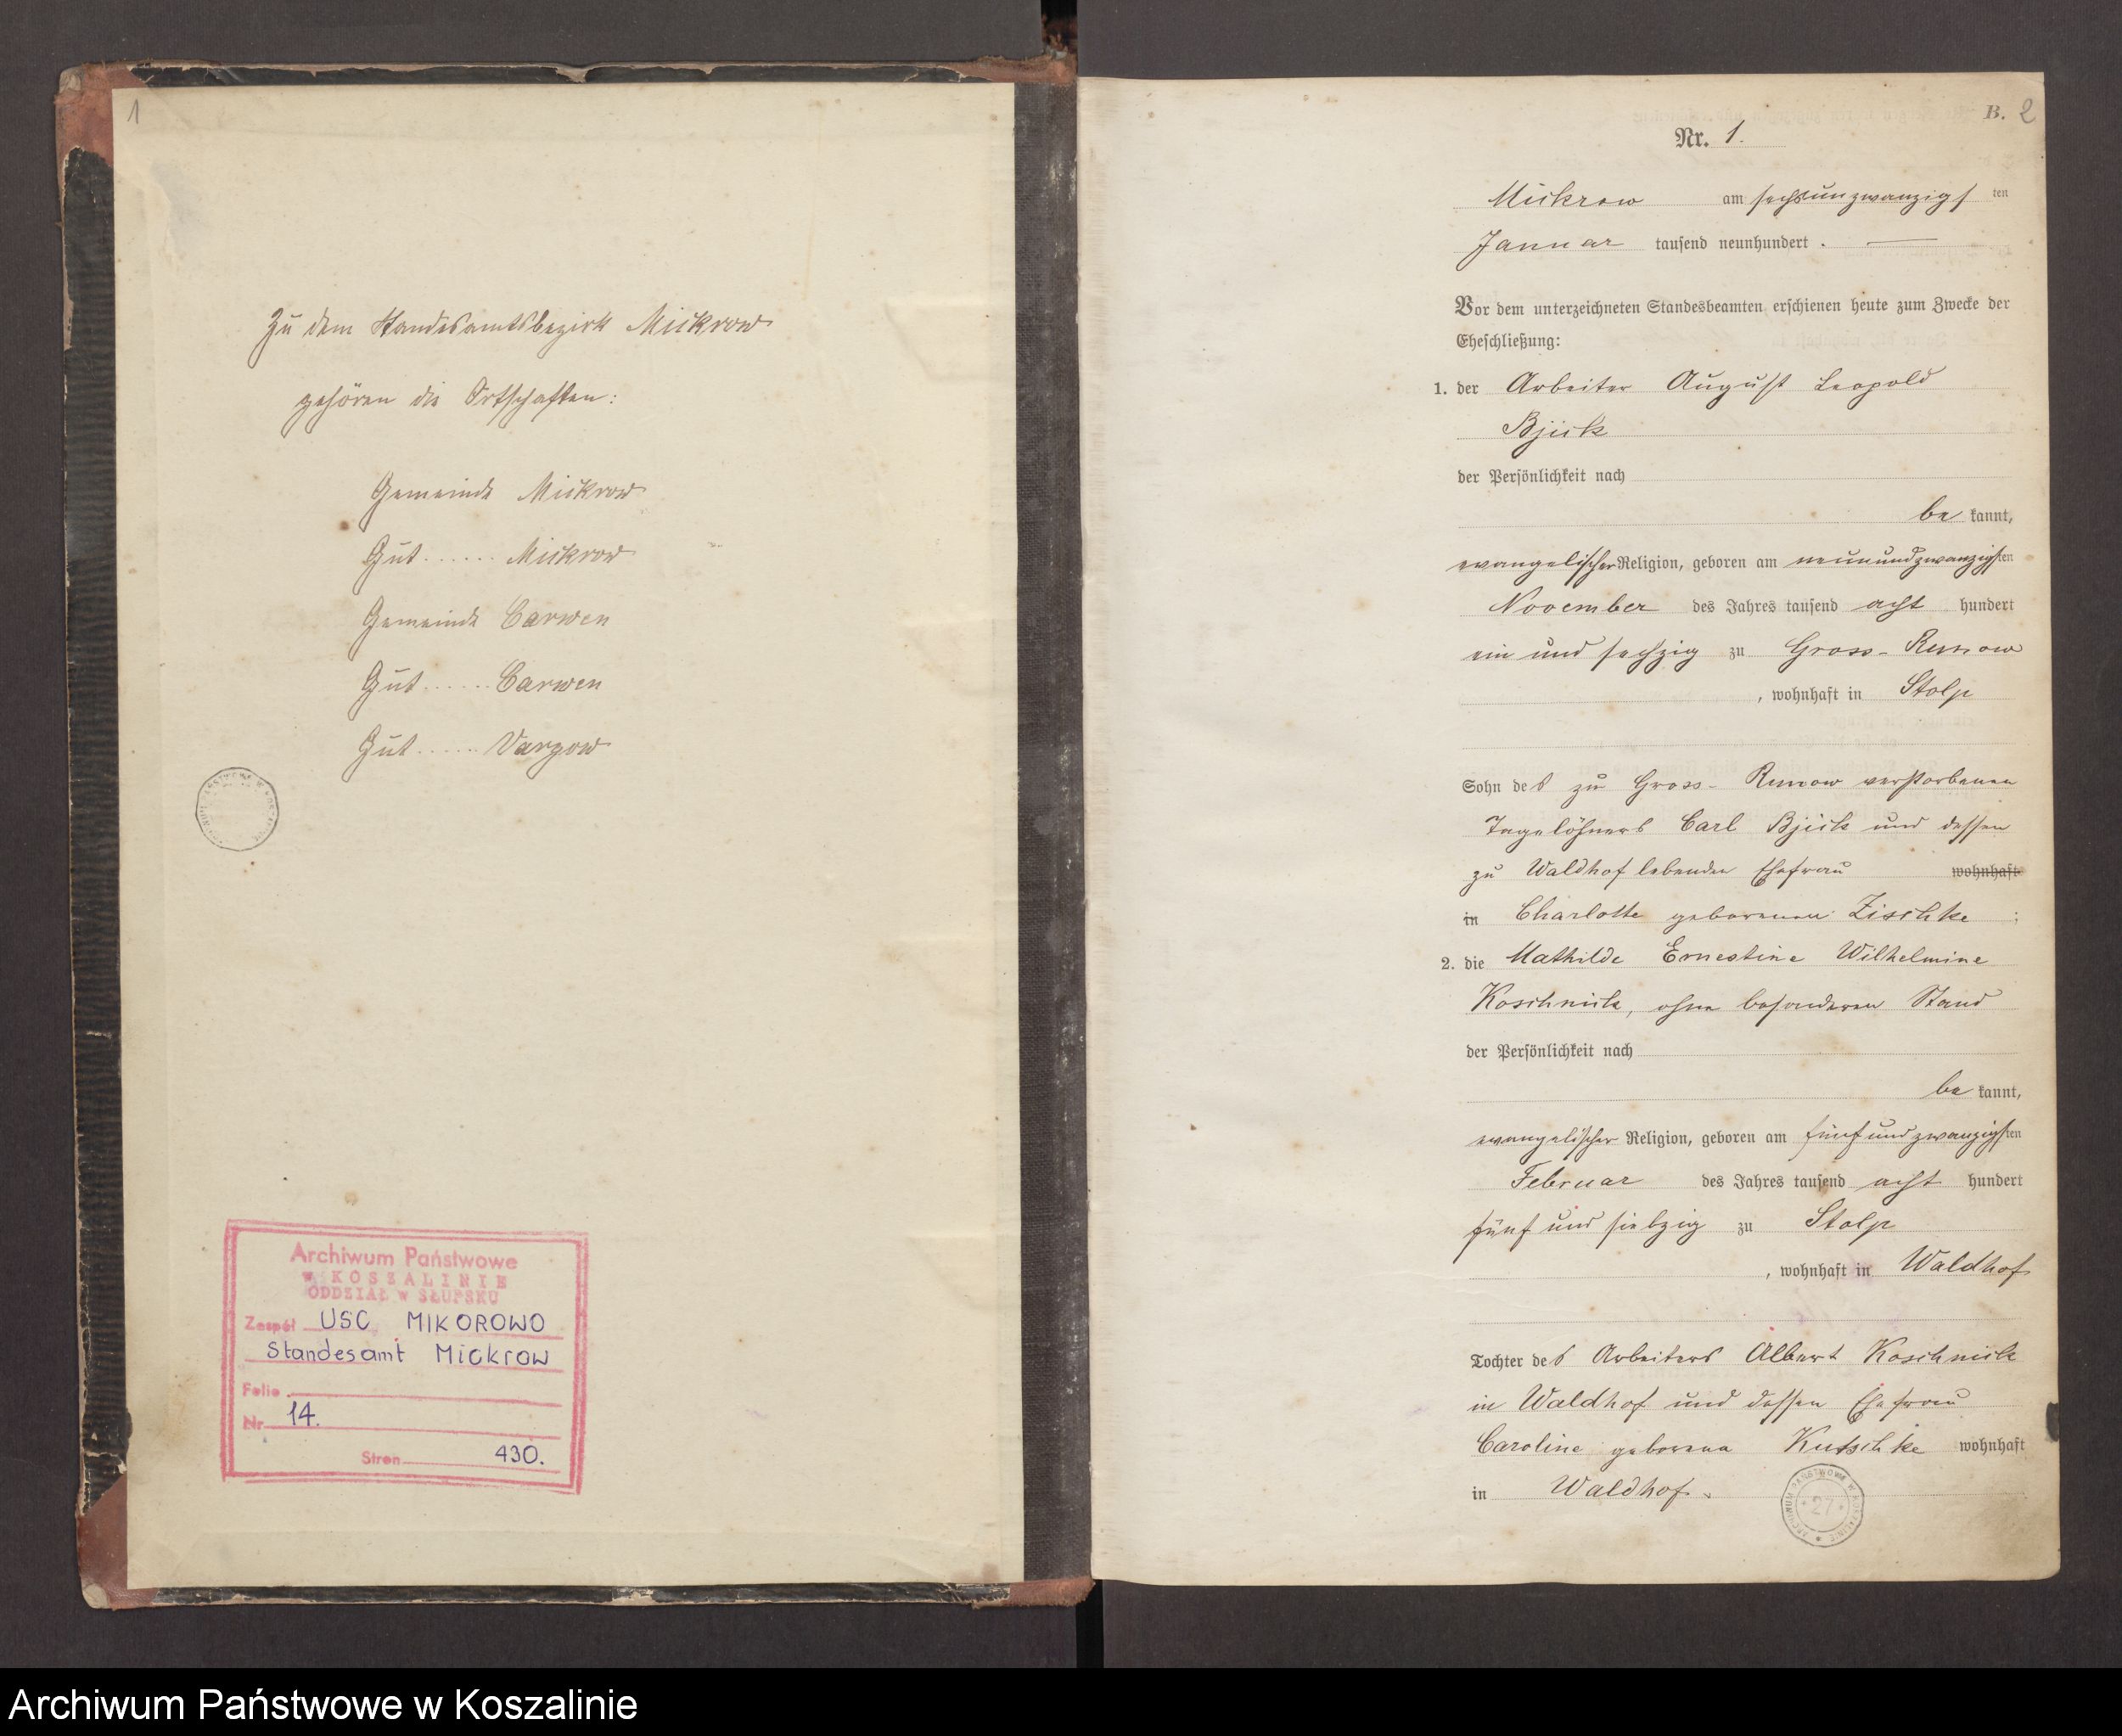 1
Zu dem Standesamtsbezirk Mickrow
gehören die Ortschaften:
Gemeinde Mickrow
Gut ...... Mickrow
Gemeinde Carwen
Gut ...... Carwen
Gut ...... Vargow
Archiwum Państwowe
w KOSZALINIE
ODDZIAŁ w SŁUPSKU
Zespół USC MIKOROWO
Standesamt Mickrow
Folio
Nr 14.
Stron 430.
B. 2
Nr. 1.
Mickrow am sechsunzwanzigsten
Januar tausend neunhundert .
Vor dem unterzeichneten Standesbeamten erschienen heute zum Zwecke der
Eheschließung:
1. der Arbeiter August Leopold
Bjick
der Persönlichkeit nach
be kannt,
evangelischer Religion, geboren am neunundzwanzigsten
November des Jahres tausend acht hundert
ein und sechzig zu Gross-Runow
, wohnhaft in Stolp
Sohn des zu Gross-Runow verstorbenen
Tagelöhners Carl Bjick und dessen
zu Waldhof lebenden Ehefrau wohnhaft
in Charlotte geborenen Zischke ;
2. die Mathilde Ernestine Wilhelmine
Koschnick, ohne besonderen Stand
der Persönlichkeit nach
be kannt,
evangelischer Religion, geboren am fünfundzwanzigsten
Februar des Jahres tausend acht hundert
fünf und siebzig zu Stolp
, wohnhaft in Waldhof
Tochter des Arbeiters Albert Koschnick
in Waldhof und dessen Ehefrau
Caroline geborene Kutschke wohnhaft
in Waldhof.
ARCHIWUM PAŃSTWOWE W KOSZALINIE
* 27 *
Archiwum Państwowe w Koszalinie